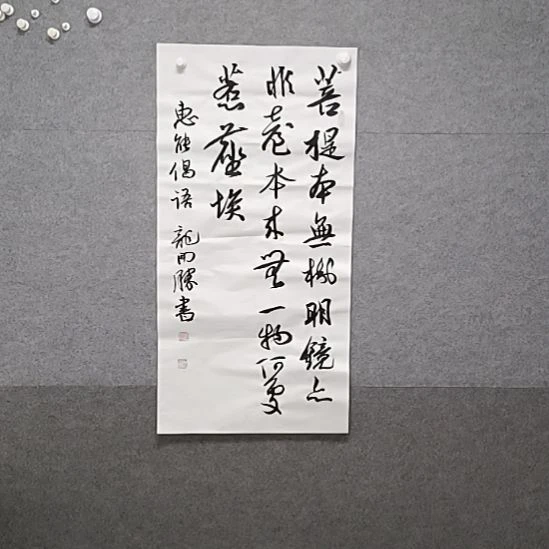 菩提本無樹明鏡亦
非臺本來無一物何處
惹塵埃
惠能偈語 龍開勝書